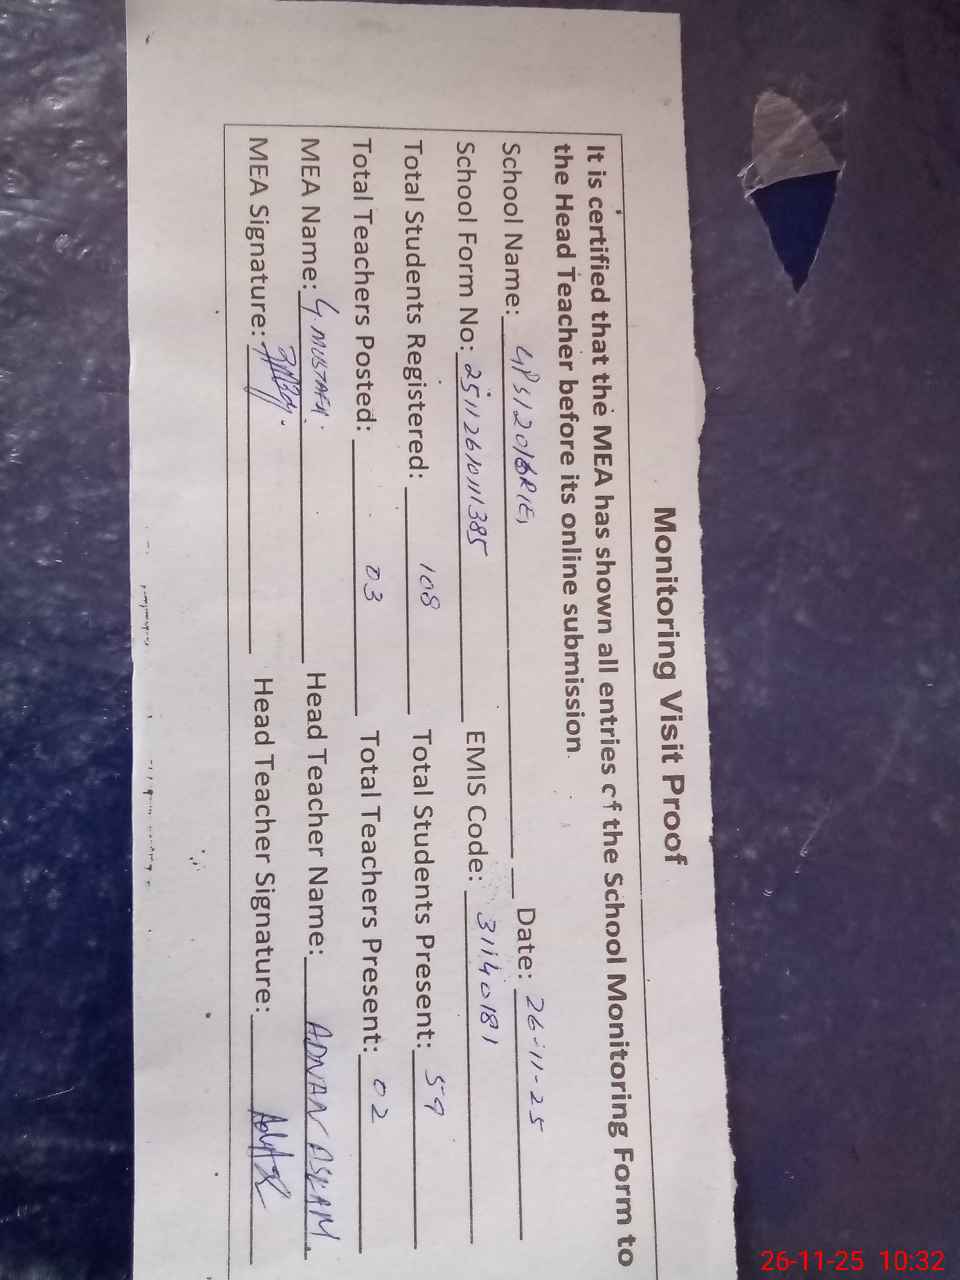 Monitoring Visit Proof
It is certified that the MEA has shown all entries of the School Monitoring Form to
the Head Teacher before its online submission.
School Name: Date: 26-11-25
School Form No: 25112610111385 EMIS Code: 31140181
Total Students Registered: 108 Total Students Present: 59
Total Teachers Posted: 03 Total Teachers Present: 02
MEA Name: G. MUSTAFA. Head Teacher Name: ADNAN ASLAM.
MEA Signature: Head Teacher Signature:
26-11-25 10:32